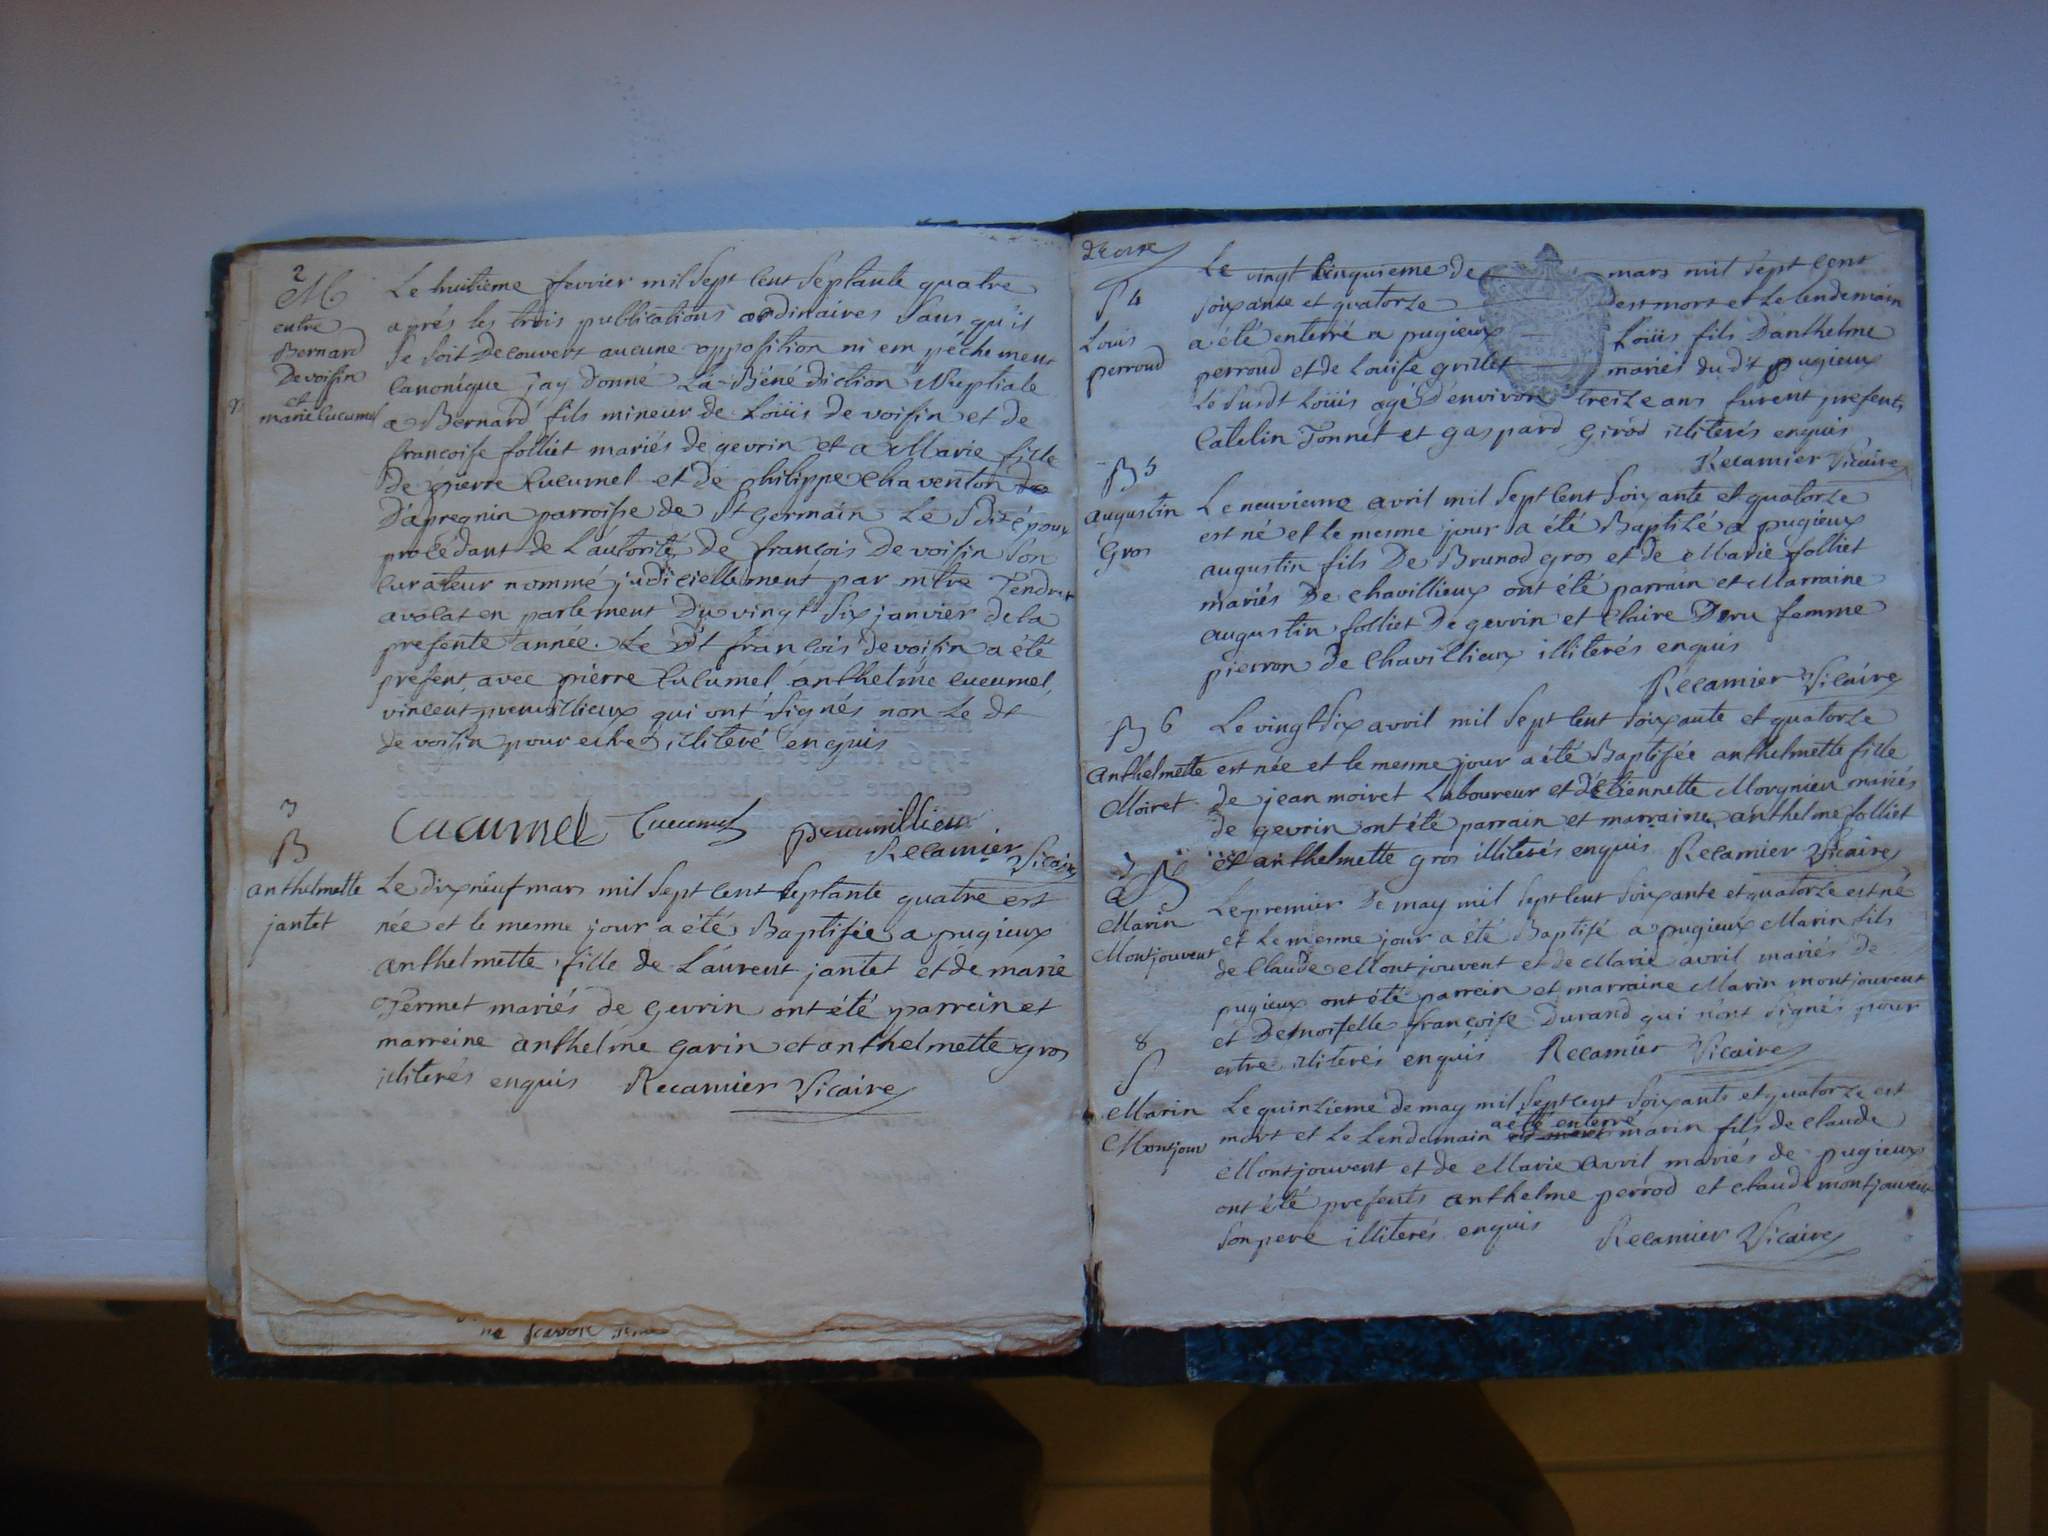 2
M
entre
Bernard
Devoisin
et
marie Cucumel
Le huitieme fevrier mil sept cent septante quatre
aprés les trois publications ordinaires sans qu'il
se soit decouvert aucune opposition ni empechement
canonique j'ay donné La Bénédiction Nuptiale
a Bernard fils mineur de Loüis de voisin et de
francoise folliet mariés de gevrin et a Marie fille
De pierre Cucumel et de philippe Chaventon
D'apregnin parroisse de St Germain Le Sdit époux
procédant de L'autorité de francois De voisin Son
curateur nommé judiciellement par mtre Tendret
avocat en parlement Du vingt six janvier de la
presente année. Le dt francois de voisin a été
present avec pierre Cucumel anthelme cucumel,
vincent preumillieux qui ont signés non Le dt
de voisin pour estre illiteré enquis
Cucumel Cucumel preumillieu
Recamier Vicaire
3
B
anthelmette
jantet
Le dixneuf mars mil sept cent septante quatre est
née et le mesme jour a été Baptisée a pugieux
anthelmette fille de Laurent jantet et de marie
Termet mariés de Gevrin ont été parrein et
marreine anthelme garin et anthelmette gros
illiterés enquis Recamier Vicaire
ne scavoir
S 4
Louis
perroud
Le vingt cinquieme de mars mil sept cent
soixante et quatorze est mort et le lendemain
a été enterré a pugieux Loüis fils D'anthelme
perroud et de Louise grillet mariés du dt pugieux
Le susdt Loüis agé d'environ treize ans furent presents
Catelin Tonnet et gaspard girod illiterés enquis
Recamier Vicaire
B 5
augustin
Gros
Le neuvieme avril mil sept cent soixante et quatorze
est né et le mesme jour a été Baptisé a pugieux
augustin fils De Brunod gros et de Marie folliet
mariés De Chavillieux ont été parrain et Marraine
augustin folliet De gevrin et Claire Deru femme
pierron de Chavillieux illiterés enquis
Recamier Vicaire
B 6
Anthelmette
Moiret
Le vingt six avril mil sept cent soixante et quatorze
est née et le mesme jour a été Baptisée anthelmette fille
de jean moiret Laboureur et d'étiennette Morgnieu mariés
de gevrin ont été parrain et marraine anthelme folliet
et anthelmette gros illiterés enquis Recamier Vicaire
B
Marin
Montjouvent
Le premier de may mil sept cent soixante et quatorze est né
et le mesme jour a été Baptisé a pugieux Marin fils
de Claude Montjouvent et de Marie avril mariés de
pugieux ont été parrein et marraine Marin montjouvent
et Demoiselle francoise Durand qui n'ont signés pour
estre illiterés enquis Recamier Vicaire
8
S
Marin
Montjouv
Le quinzieme de may mil sept cent soixante et quatorze est
mort et Le Lendemain a été enterré marin fils de Claude
Montjouvent et de Marie avril mariés de pugieux
ont été presents anthelme perrod et claude montjouvent
son pere illiterés enquis Recamier Vicaire